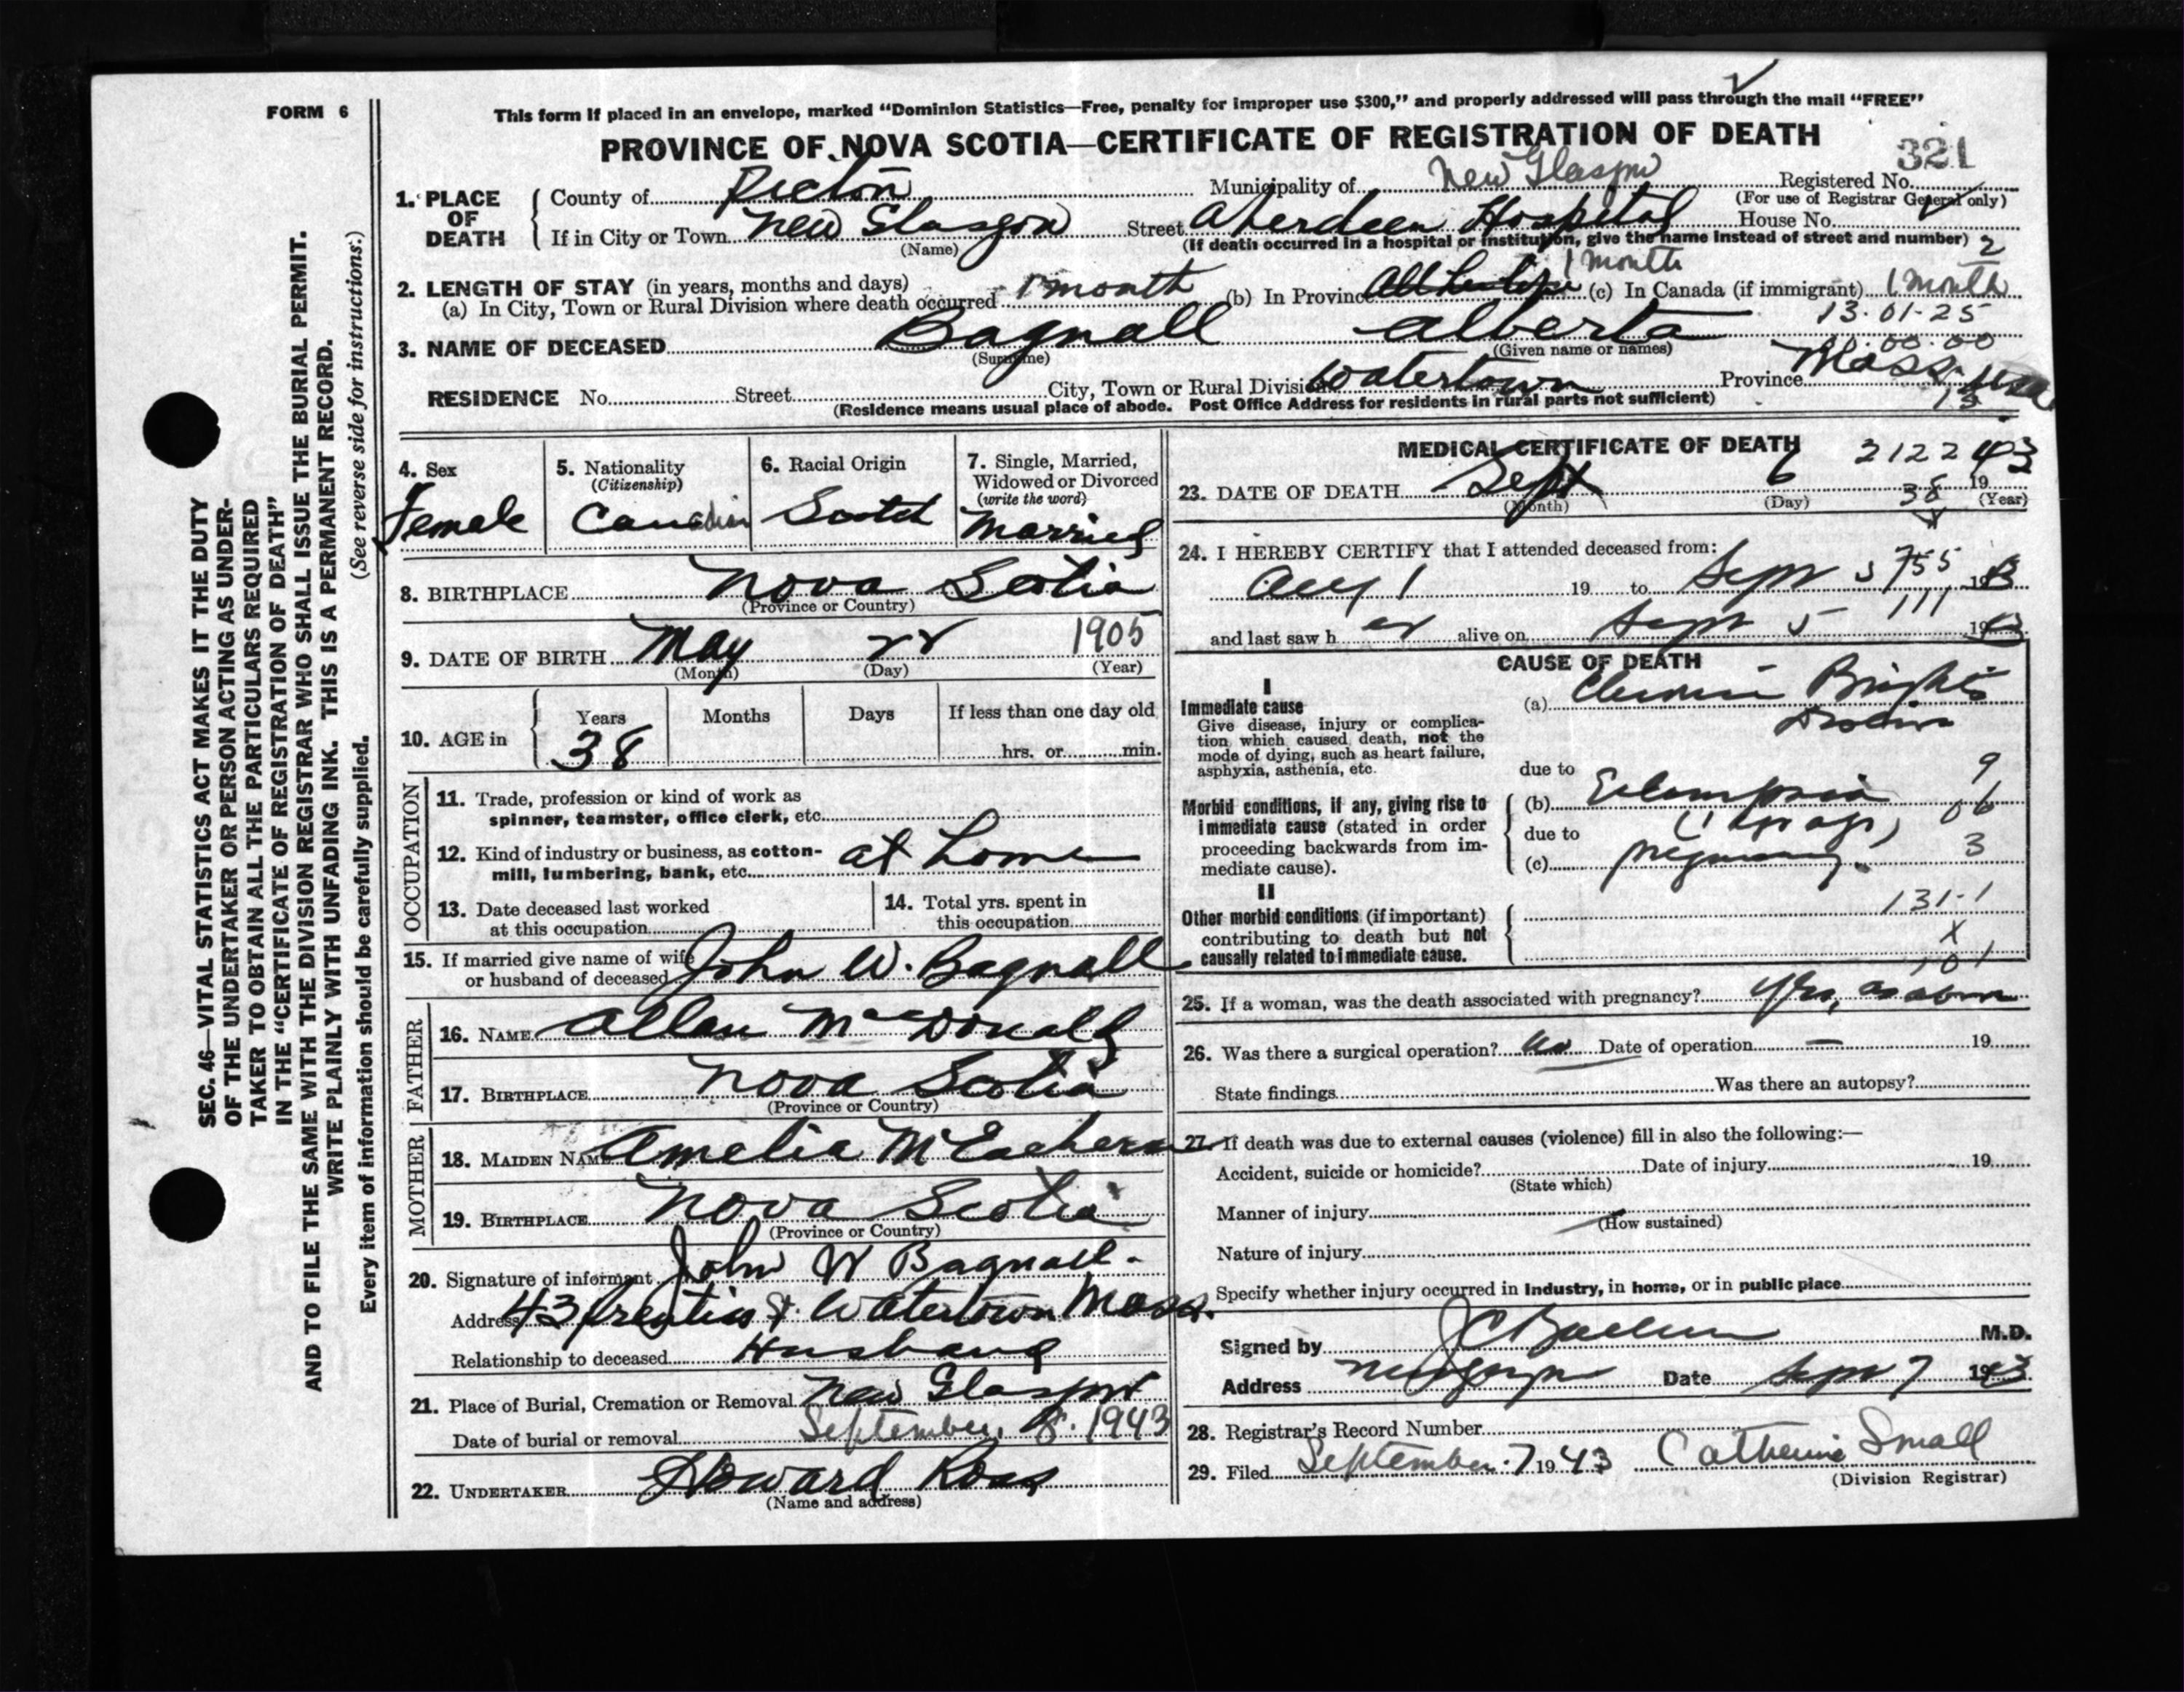 FORM 6
This form if placed in an envelope, marked "Dominion Statistics—Free, penalty for improper use $300," and properly addressed will pass through the mail "FREE"
PROVINCE OF NOVA SCOTIA—CERTIFICATE OF REGISTRATION OF DEATH
321
1. PLACE OF DEATH
County of Pictou Municipality of New Glasgow Registered No.
(For use of Registrar General only)
If in City or Town New Glasgow Street Aberdeen Hospital House No.
(Name) (If death occurred in a hospital or institution, give the name instead of street and number) 2
2. LENGTH OF STAY (in years, months and days) 1 month
(a) In City, Town or Rural Division where death occurred 1 month (b) In Province (c) In Canada (if immigrant) 1 month
13.01-25
3. NAME OF DECEASED Bagnall Alberta
(Surname) (Given name or names) 00.00.00
RESIDENCE No. Street City, Town or Rural Division Watertown Province Mass. USA
(Residence means usual place of abode. Post Office Address for residents in rural parts not sufficient) 13
4. Sex
Female
5. Nationality
(Citizenship)
Canadian
6. Racial Origin
Scotch
7. Single, Married,
Widowed or Divorced
(write the word)
Married
8. BIRTHPLACE Nova Scotia
(Province or Country)
9. DATE OF BIRTH May 22 1905
(Month) (Day) (Year)
10. AGE in Years Months Days If less than one day old
38 hrs. or min.
OCCUPATION
11. Trade, profession or kind of work as
spinner, teamster, office clerk, etc.
12. Kind of industry or business, as cotton-
mill, lumbering, bank, etc. at home
13. Date deceased last worked
at this occupation
14. Total yrs. spent in
this occupation
15. If married give name of wife
or husband of deceased John W. Bagnall
FATHER
16. NAME Allan MacDonald
17. BIRTHPLACE Nova Scotia
(Province or Country)
MOTHER
18. MAIDEN NAME Amelia McEachern
19. BIRTHPLACE Nova Scotia
(Province or Country)
20. Signature of informant John W Bagnall
Address 43 Prentiss St. Watertown Mass.
Relationship to deceased Husband
21. Place of Burial, Cremation or Removal New Glasgow
Date of burial or removal September 8. 1943
22. UNDERTAKER Howard Ross
(Name and address)
MEDICAL CERTIFICATE OF DEATH
2122
23. DATE OF DEATH Sept 6 1943
(Month) (Day) (Year)
38
24. I HEREBY CERTIFY that I attended deceased from:
Aug 1 19 to Sept 5 1943
755
111
and last saw her alive on Sept 5 1943
CAUSE OF DEATH
I
Immediate cause
Give disease, injury or complica-
tion which caused death, not the
mode of dying, such as heart failure,
asphyxia, asthenia, etc.
(a) Chronic Bright's
Disease
due to
Morbid conditions, if any, giving rise to
immediate cause (stated in order
proceeding backwards from im-
mediate cause).
(b) Eclampsia
due to
(c) pregnancy.
9
06
3
II
Other morbid conditions (if important)
contributing to death but not
causally related to immediate cause.
131-1
X
101
25. If a woman, was the death associated with pregnancy? Yes, as above
26. Was there a surgical operation? No Date of operation — 19
State findings Was there an autopsy?
27. If death was due to external causes (violence) fill in also the following:—
Accident, suicide or homicide? Date of injury 19
(State which)
Manner of injury
(How sustained)
Nature of injury
Specify whether injury occurred in Industry, in home, or in public place
Signed by M.D.
Address Date Sept 7 1943
28. Registrar's Record Number
29. Filed September 7 1943 Catherine Small
(Division Registrar)
SEC. 46—VITAL STATISTICS ACT MAKES IT THE DUTY
OF THE UNDERTAKER OR PERSON ACTING AS UNDER-
TAKER TO OBTAIN ALL THE PARTICULARS REQUIRED
IN THE "CERTIFICATE OF REGISTRATION OF DEATH"
AND TO FILE THE SAME WITH THE DIVISION REGISTRAR WHO SHALL ISSUE THE BURIAL PERMIT.
WRITE PLAINLY WITH UNFADING INK. THIS IS A PERMANENT RECORD.
Every item of information should be carefully supplied. (See reverse side for instructions.)